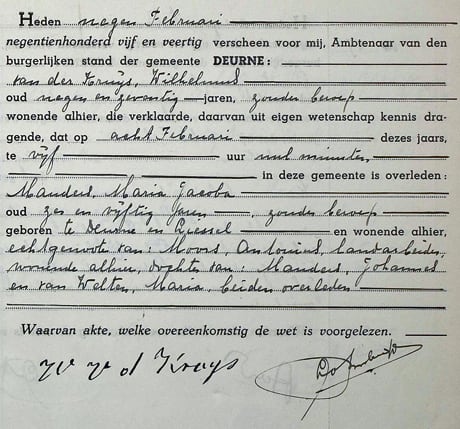 Heden negen Februari
negentienhonderd vijf en veertig verscheen voor mij, Ambtenaar van den
burgerlijken stand der gemeente DEURNE:
van der Kruys, Wilhelmus
oud negen en zeventig jaren, zonder beroep
wonende alhier, die verklaarde, daarvan uit eigen wetenschap kennis dra-
gende, dat op acht Februari dezes jaars,
te vijf uur nul minuten,
in deze gemeente is overleden:
Manders, Maria Jacoba
oud zes en vijftig jaren, zonder beroep
geboren te Deurne en Liessel en wonende alhier,
echtgenoote van: Moors, Antonius, landarbeider,
wonende alhier, dochter van: Manders, Johannes
en van Welten, Maria, beiden overleden
Waarvan akte, welke overeenkomstig de wet is voorgelezen.
W v d Kruys